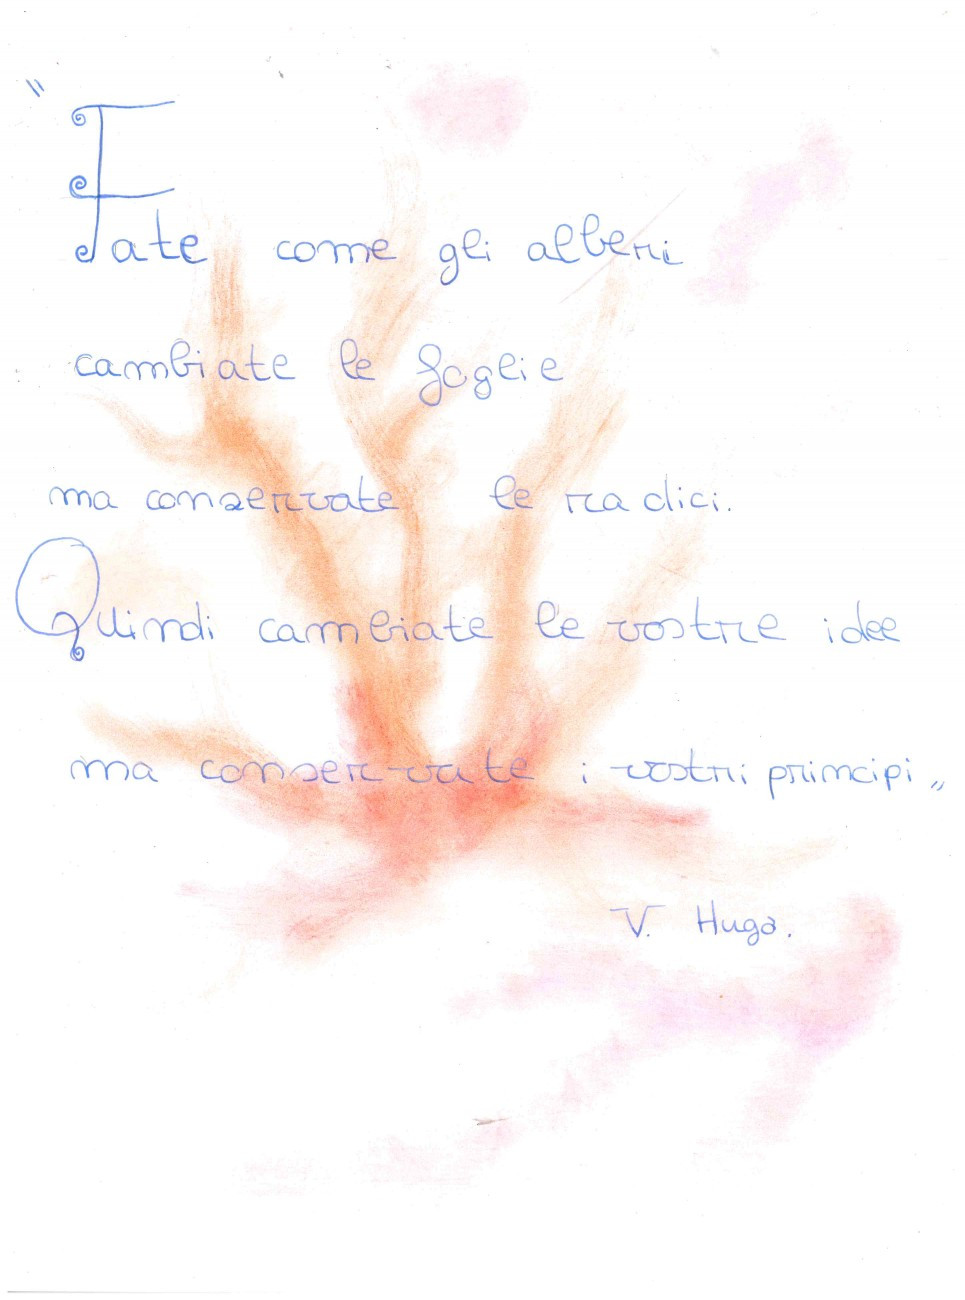 "Fate come gli alberi
cambiate le foglie
ma conservate le radici.
Quindi cambiate le vostre idee
ma conservate i vostri principi"
V. Hugo.